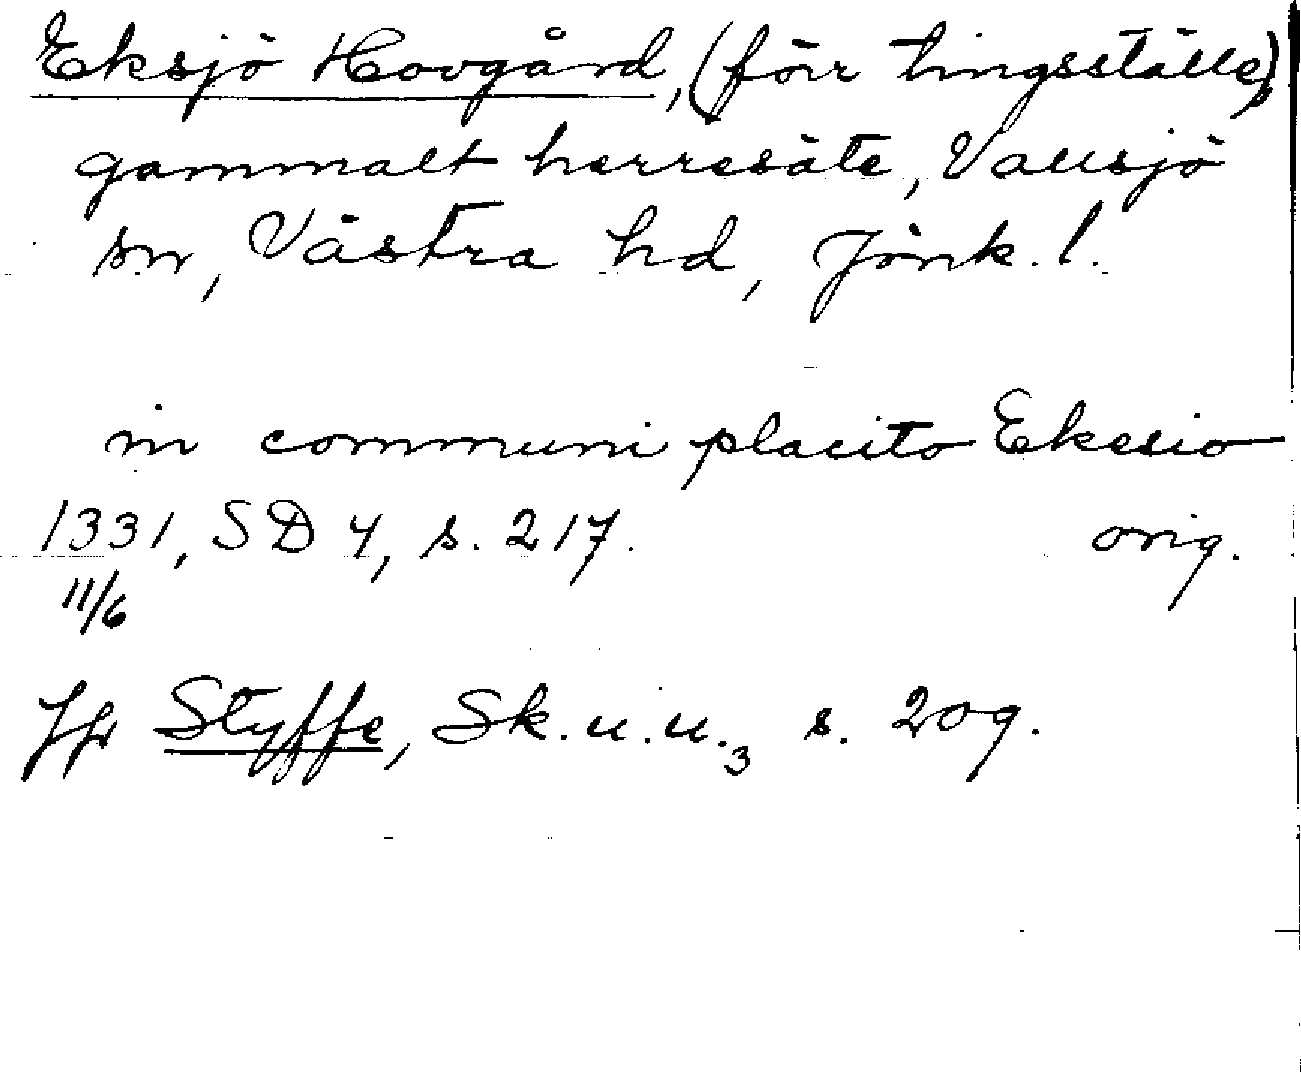 Eksjö Hovgård, (förr tingsställe),
gammalt herresäte, Vallsjö
sn, Västra hd, Jönk. l.
in communi placito Ekesio
1331, SD 4, s. 217. orig.
11/6
Jfr Styffe, Sk. u. u.3 s. 209.